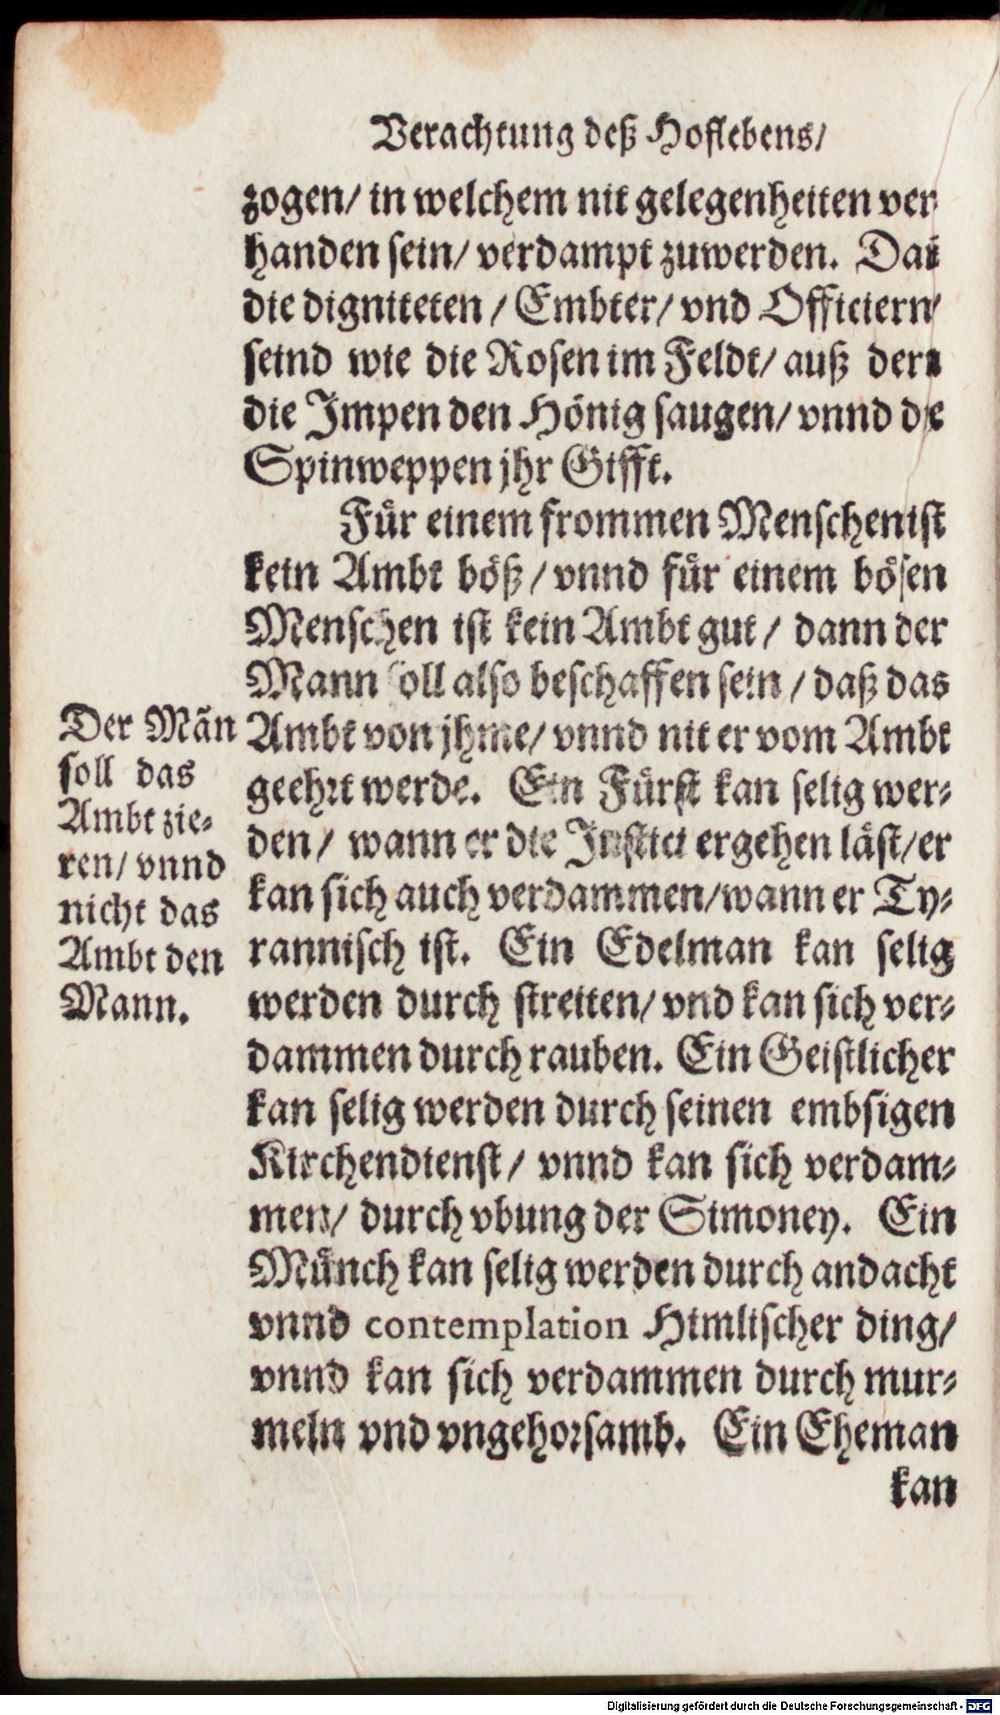 Verachtung deß Hoflebens/
zogen/ in welchem nit gelegenheiten ver
handen sein/ verdampt zuwerden. Dañ
die digniteten / Embter/ vnd Officiern/
seind wie die Rosen im Feldt/ auß dern
die Impen den Hönig saugen/ vnnd die
Spinweppen jhr Gifft.
Für einem frommen Menschen ist
kein Ambt böß / vnnd für einem bösen
Menschen ist kein Ambt gut / dann der
Mann soll also beschaffen sein / daß das
Ambt von jhme/ vnnd nit er vom Ambt
geehrt werde. Ein Fürst kan selig wer-
den / wann er die Justici ergehen läst/ er
kan sich auch verdammen/wann er Ty-
rannisch ist. Ein Edelman kan selig
werden durch streiten/ vnd kan sich ver-
dammen durch rauben. Ein Geistlicher
kan selig werden durch seinen embsigen
Kirchendienst / vnnd kan sich verdam-
men/ durch vbung der Simoney. Ein
Münch kan selig werden durch andacht
vnnd contemplation Himlischer ding/
vnnd kan sich verdammen durch mur-
meln vnd vngehorsamb. Ein Eheman
kan
Der Mañ
soll das
Ambt zie-
ren/ vnnd
nicht das
Ambt den
Mann.
Digitalisierung gefördert durch die Deutsche Forschungsgemeinschaft - DFG